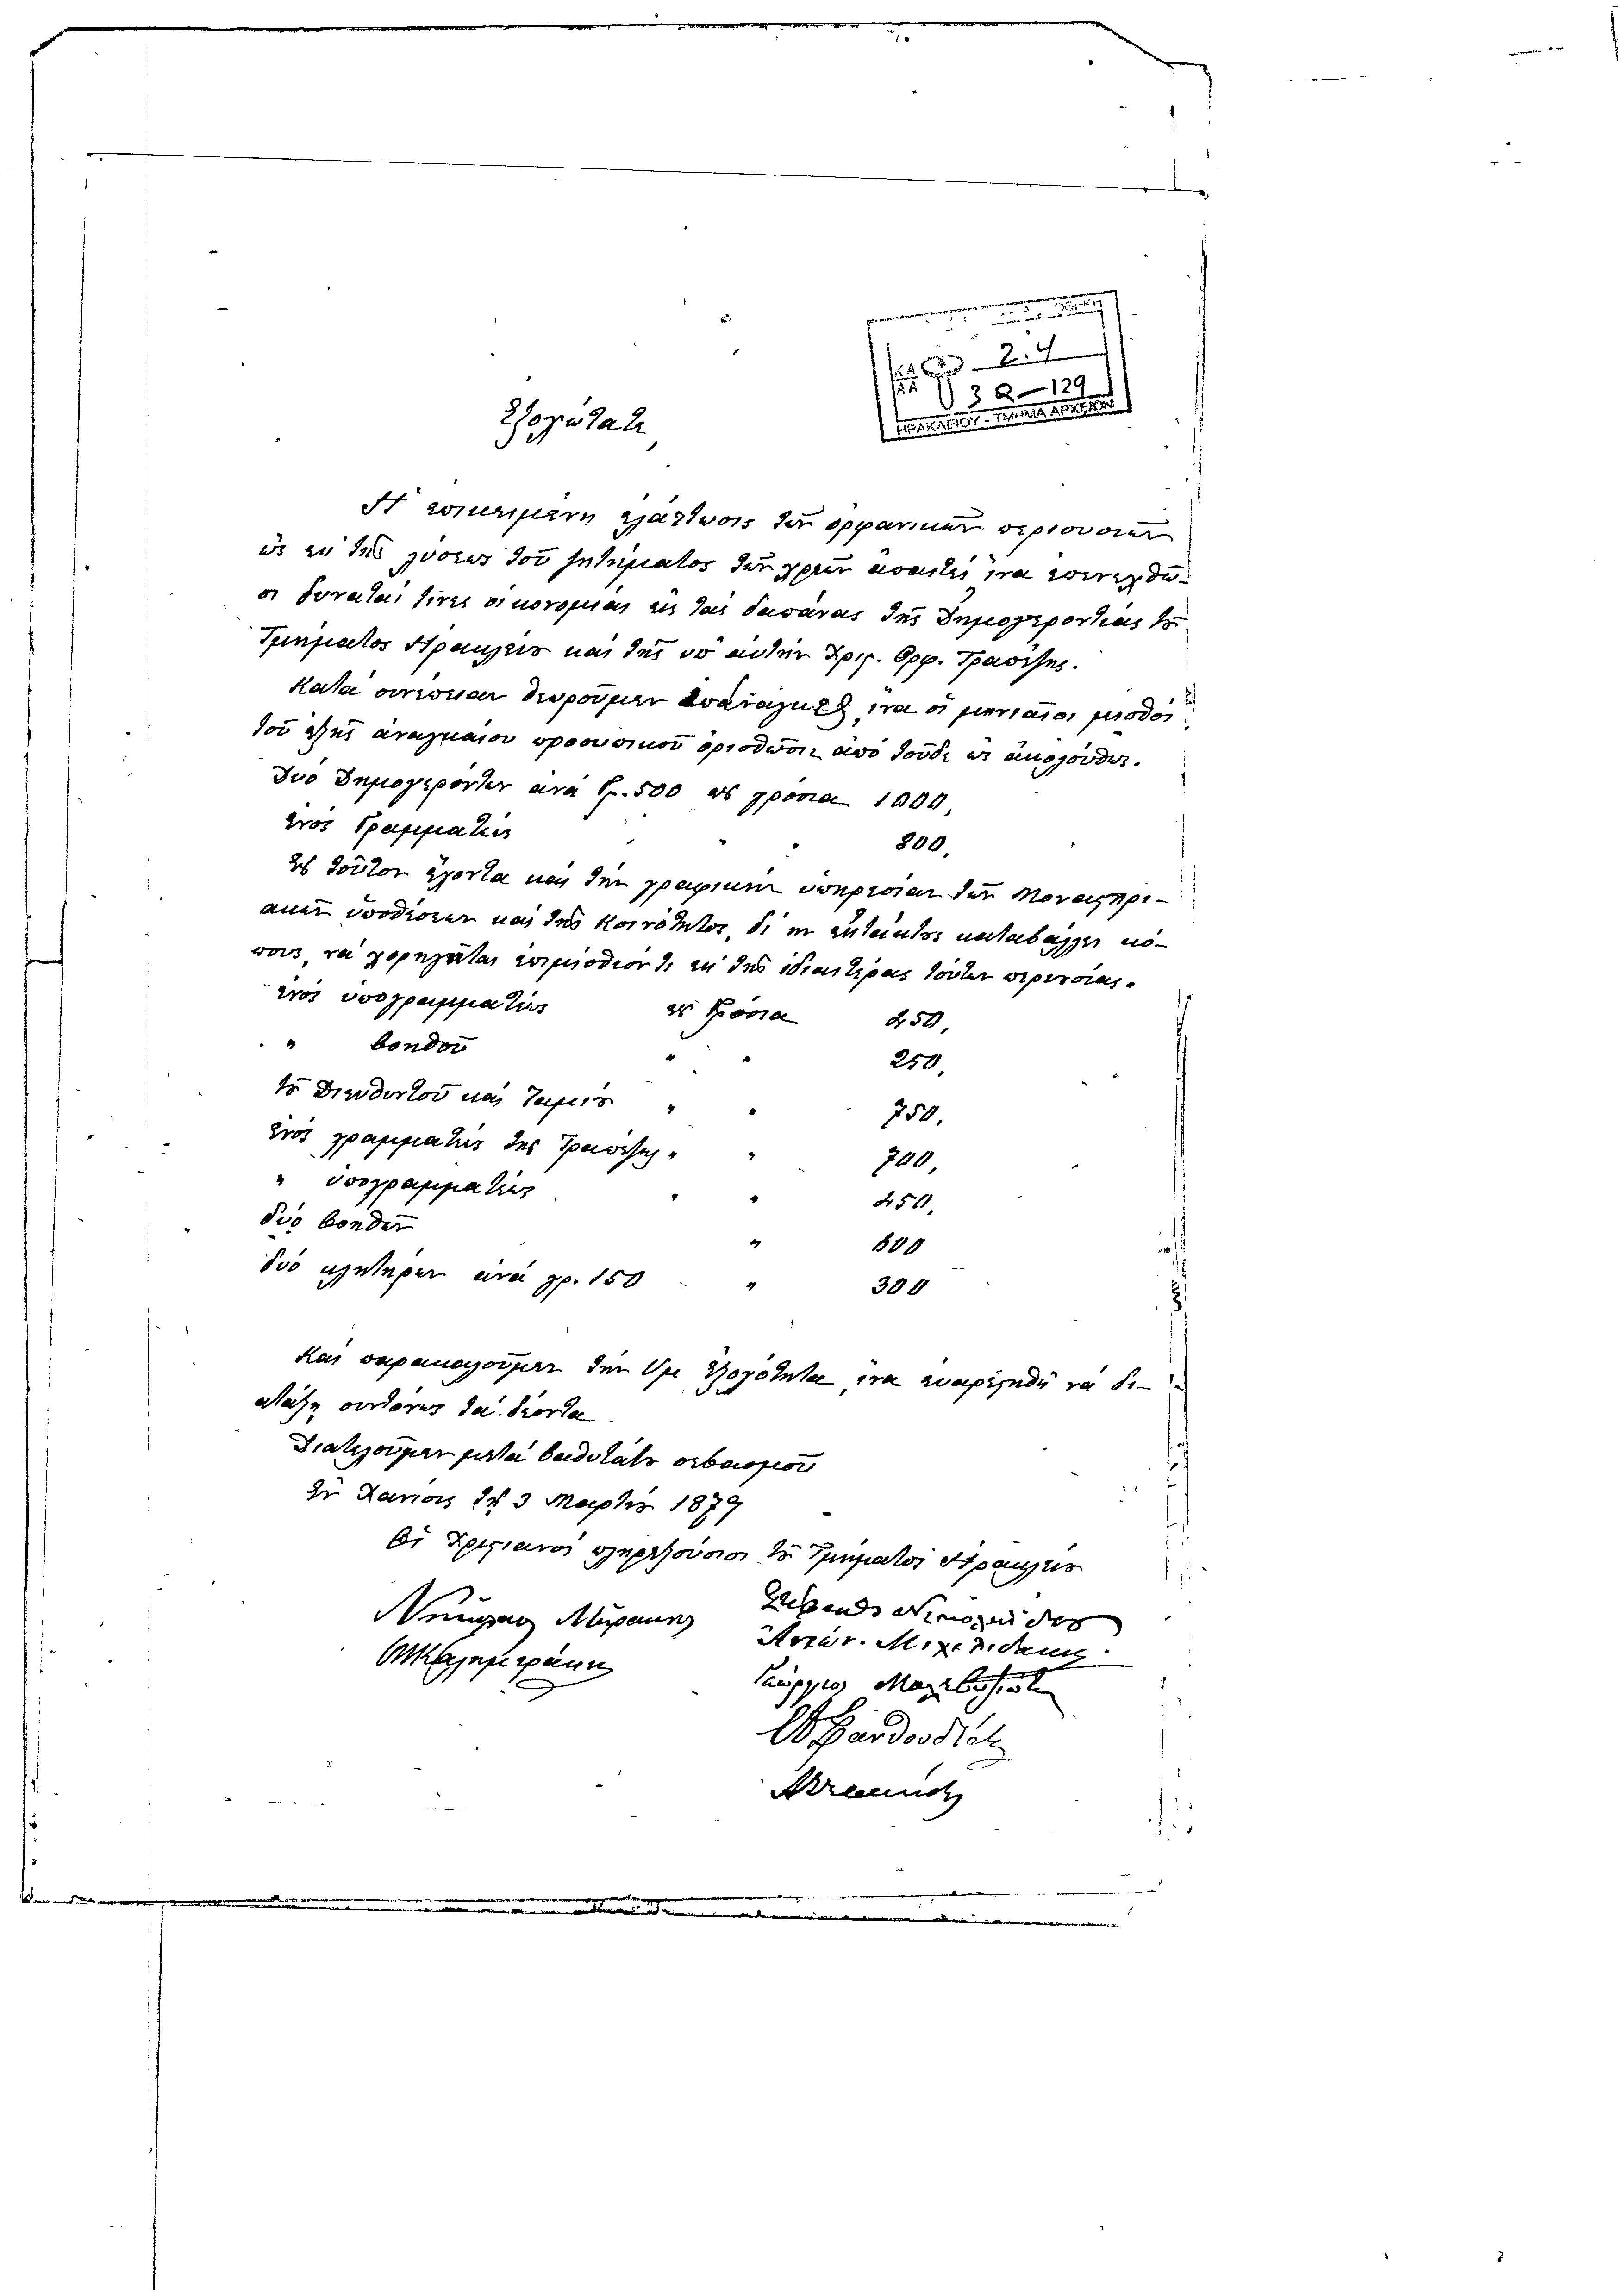 2.4
32-129
ΗΡΑΚΛΕΙΟΥ - ΤΜΗΜΑ ΑΡΧΕΙΩΝ
Ἐξοχώτατε,
Ἡ ἐπικειμένη ἐλάττωσις τῶν ὀρφανικῶν περιουσιῶν
ὡς ἐκ τῆς λύσεως τοῦ ζητήματος τῶν χρεῶν ἀπαιτεῖ ἵνα ἐπενεχθῶ-
σι δυναταί τινες οἰκονομίαι εἰς τὰς δαπάνας τῆς Δημογεροντίας τοῦ
Τμήματος Ἡρακλείου καὶ τῆς ὑπ' αὐτὴν Χρισ. Ορφ. Τραπέζης.
Κατὰ συνέπειαν θεωροῦμεν ἵνα οἱ μηνιαῖοι μισθοὶ
τοῦ ἑξῆς ἀναγκαίου προσωπικοῦ ὁρισθῶσιν ἀπὸ τοῦδε ὡς ἀκολούθως.
Δύο Δημογερόντων ἀνὰ Γρ. 500 εἰς γρόσια 1000,
ἑνὸς Γραμματέως " " 800,
εἰς τοῦτον ἔχοντα καὶ τὴν γραφικὴν ὑπηρεσίαν τῶν Μοναστηρι-
ακῶν ὑποθέσεων καὶ τῆς Κοινότητος, δι' ἣν ἐκτάκτως καταβάλλει κό-
πους, νὰ χορηγῆται ἐπιμίσθιόν τι ἐκ τῆς ἰδιαιτέρας τούτων περιουσίας.
ἑνὸς ὑπογραμματέως εἰς Γρόσια 450,
" βοηθοῦ " " 250,
τοῦ Διευθυντοῦ καὶ Ταμίου " " 750,
ἑνὸς γραμματέως τῆς Τραπέζης " " 700,
" ὑπογραμματέως " " 450,
δύο βοηθῶν " 600
δύο κλητήρων ἀνὰ γρ. 150 " 300
Καὶ παρακαλοῦμεν τὴν Ὑμ Ἐξοχότητα, ἵνα εὐαρεστηθῇ νὰ δι-
ατάξῃ συντόνως τὰ δέοντα
Διατελοῦμεν μετὰ βαθυτάτου σεβασμοῦ
Ἐν Χανίοις τῇ 3 Μαρτίου 1879
Οἱ Χριστιανοὶ πληρεξούσιοι τοῦ Τμήματος Ἡρακλείου
Ἀντών. Μιχελιδάκης
Γεώργιος